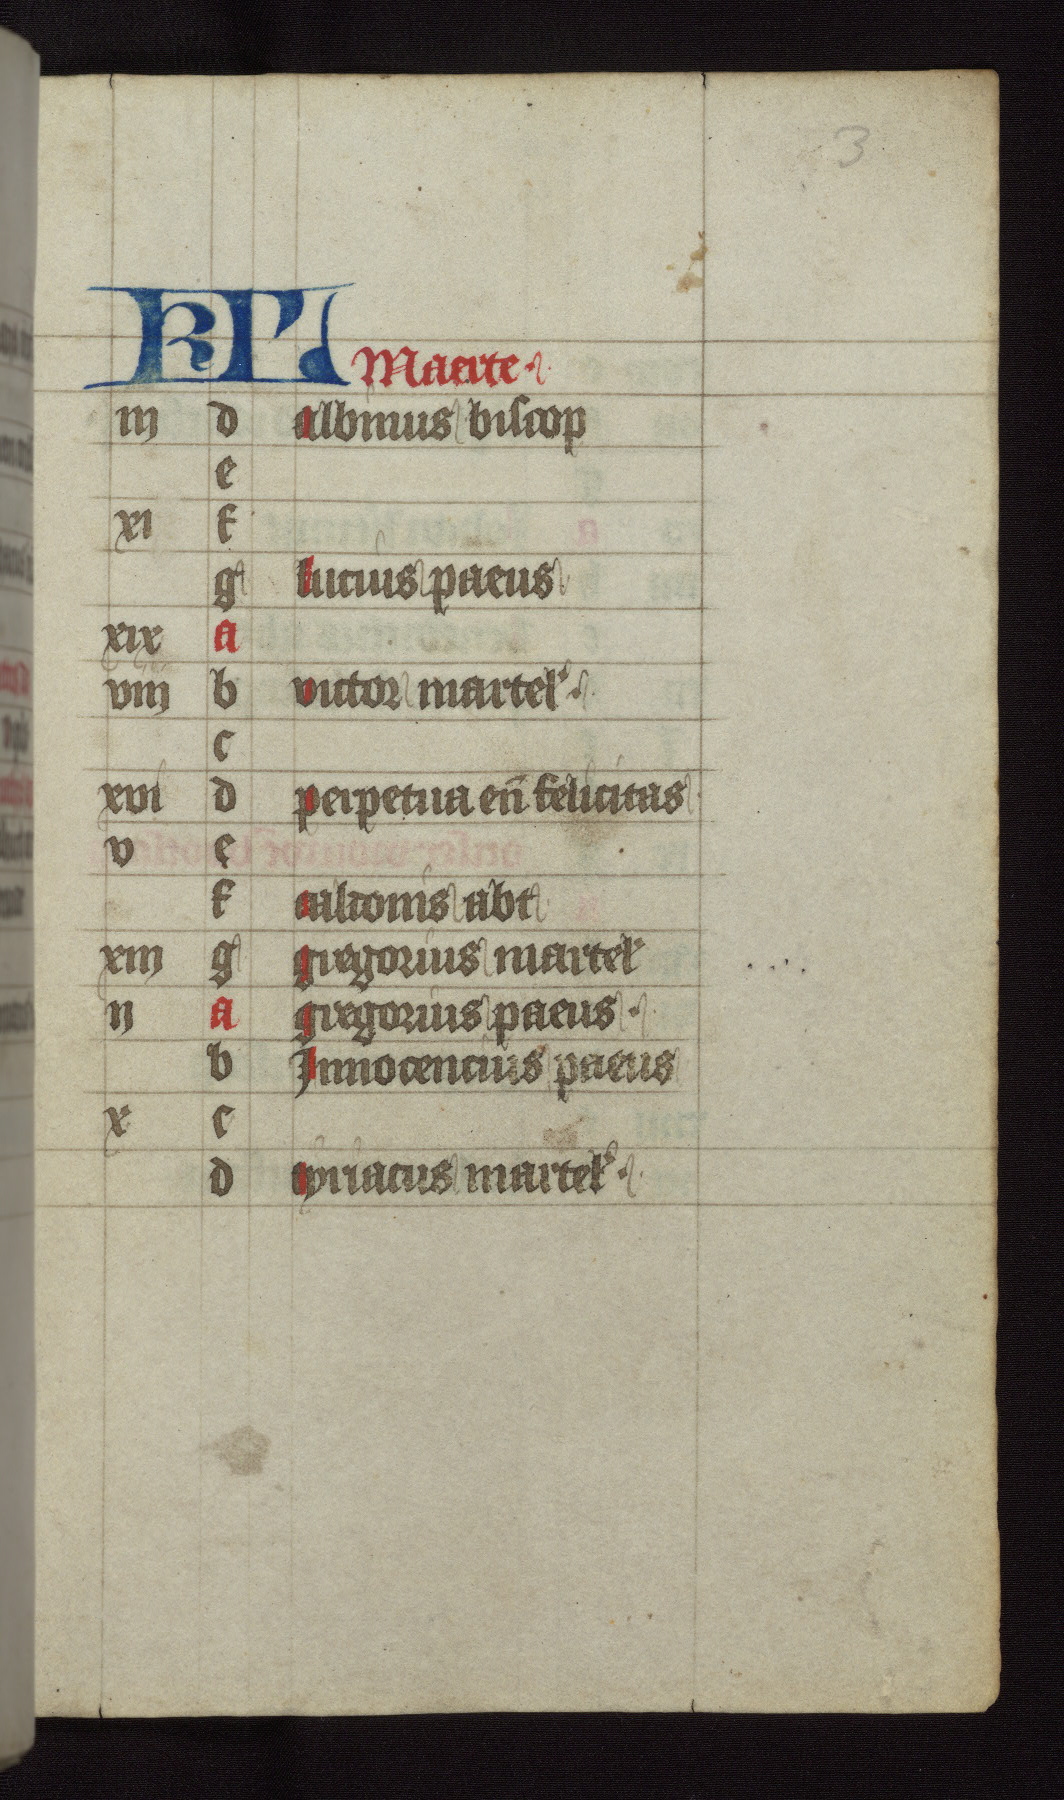 3
KL Maerte
iii d albinus biscop
e
xi f
g lucius paeus
xix a
viii b victor martel'
c
xvi d perpetua en̄ felicitas
v e
f calionis abt
xiii g gregorius martel'
ii a gregorius paeus
b Innocencius paeus
x c
d cyriacus martel'